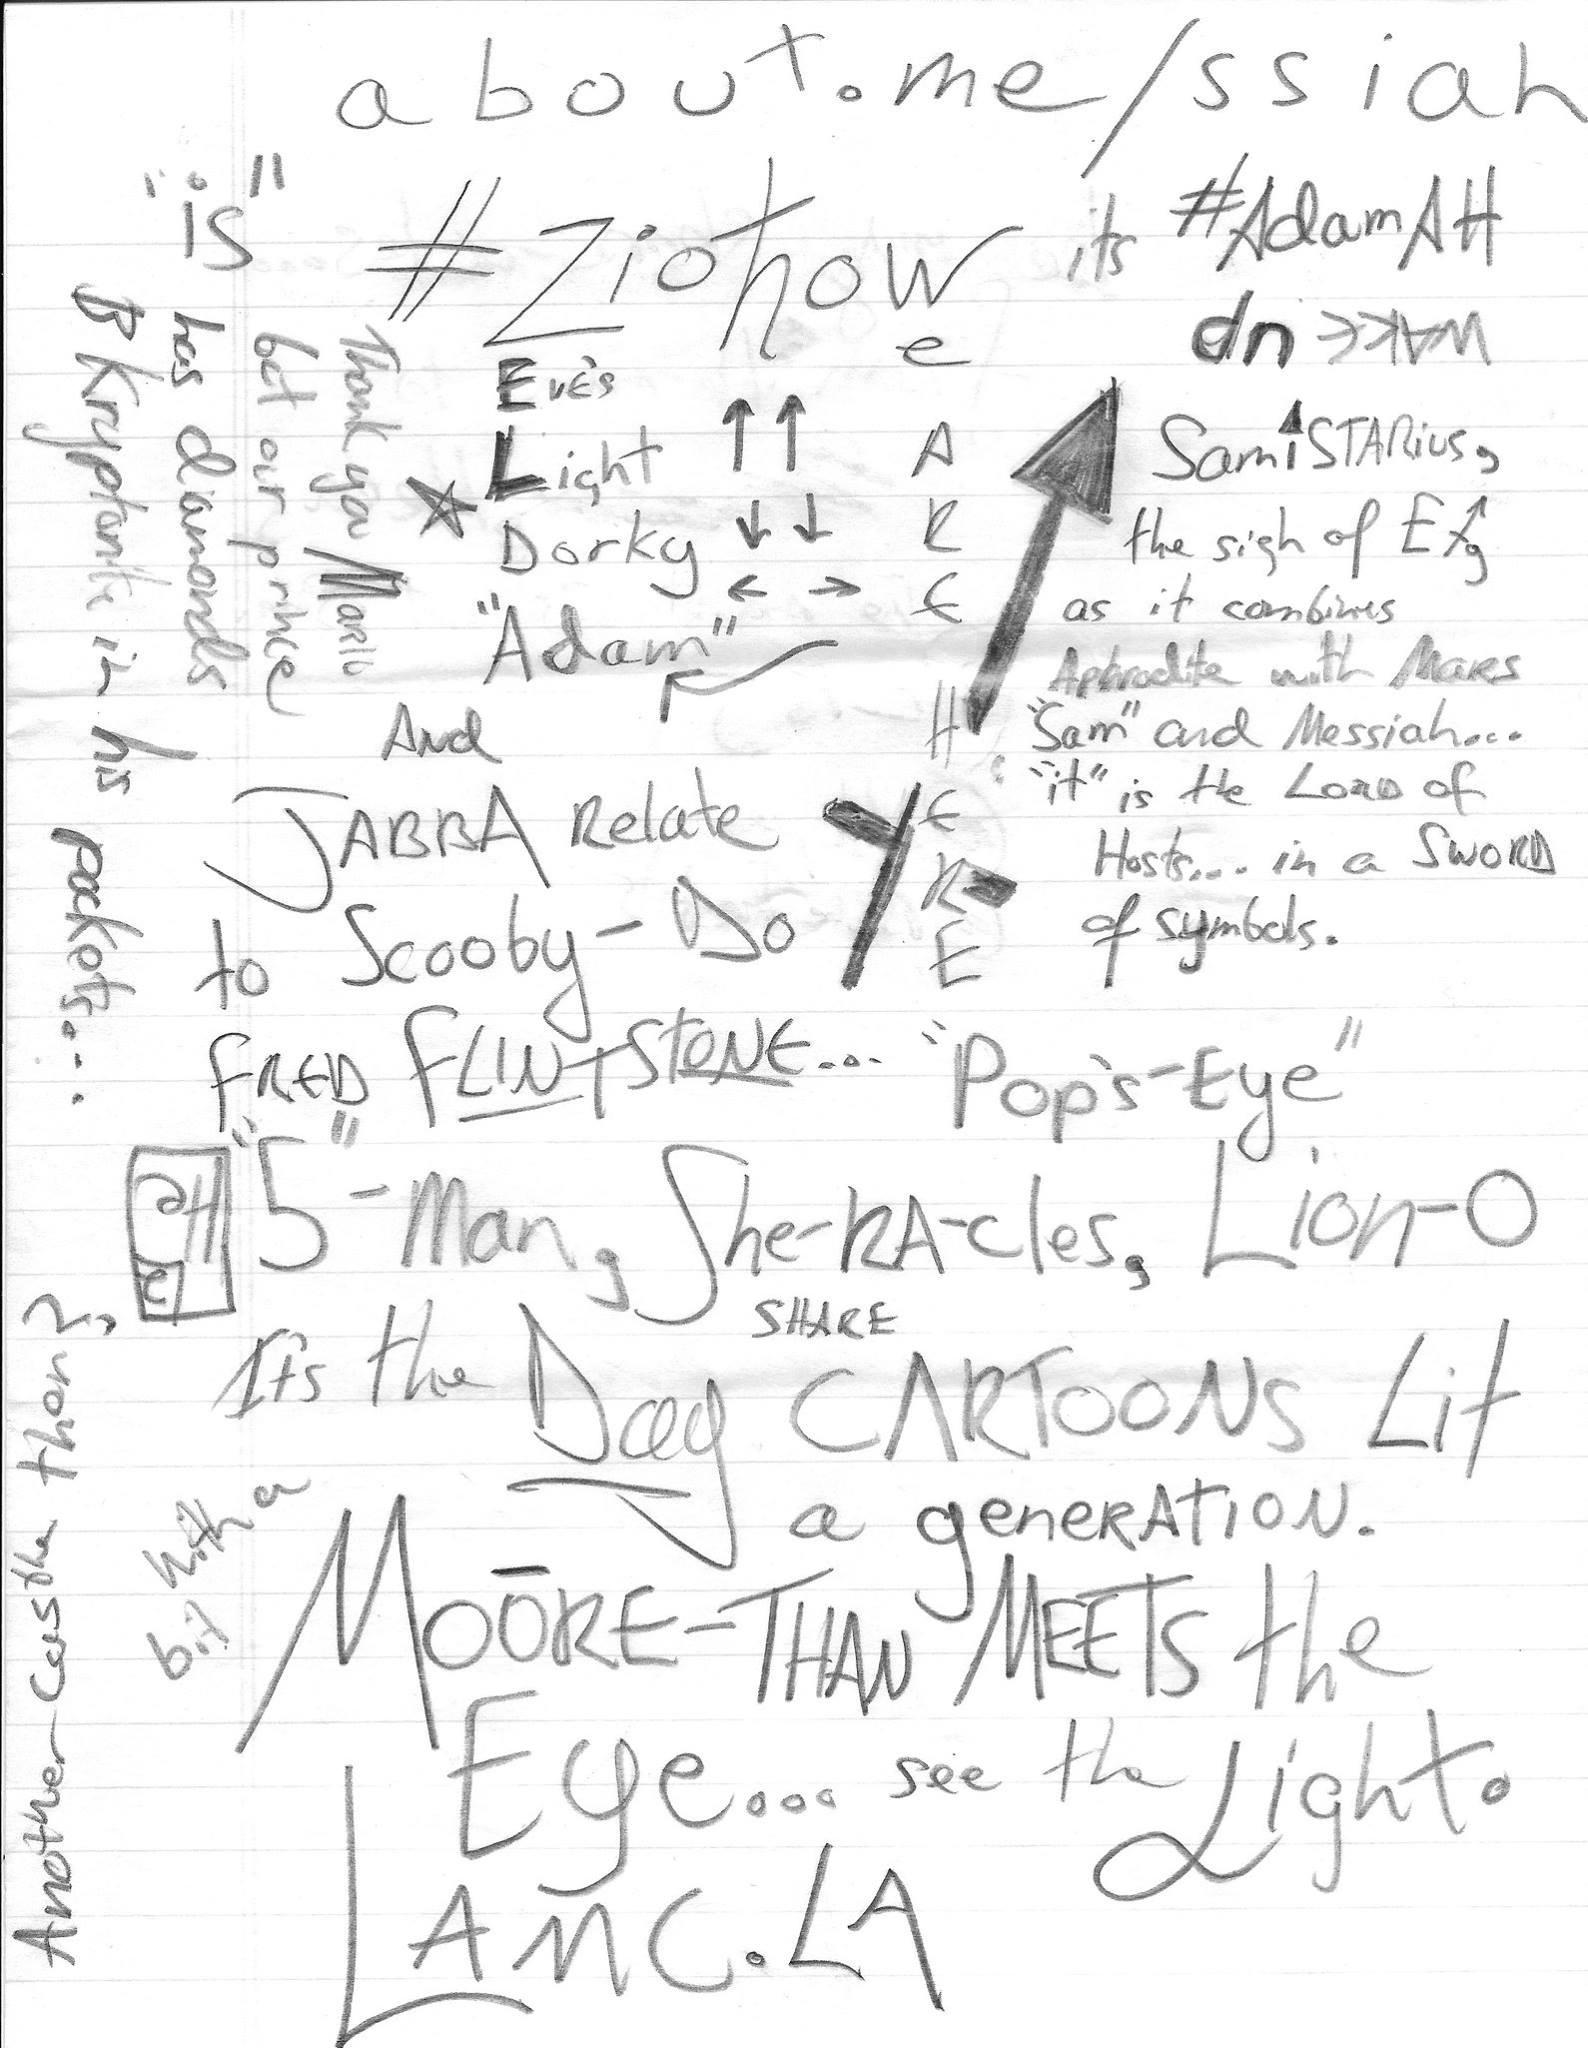 about.me/ssiah
#Ziohow its #AdamAH
WAKE up
"is"
Thank you Mario
but our prince
has diamonds
B Kryptonite in his pockets....
Eve's
Light ↑↑
Dorky ↓↓
← →
"Adam"
e
A
R
E
H
E
R
E
SamiSTARius,
the sign of
as it combines
Aphrodite with Mares
"Sam" and Messiah...
"it" is the Lord of
Hosts.... in a SWORD
of symbols.
And
JABBA Relate
to Scooby-Do
FRED FLINTSTONE... "Pop's-Eye"
He
"5"-Man, She-RA-cles, Lion-O
SHARE
Its the Day CARTOONS Lit
a geneRATION.
bit with a
MOŌRE-THAN MEETS the
Eye... see the Light.
LAMC.LA
Another
then?